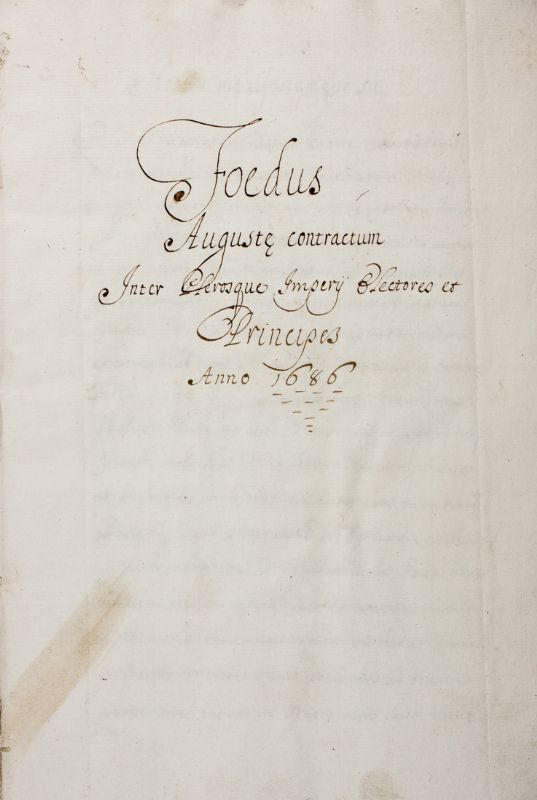 Foedus
Augustę contractum
Inter Plerosque Imperij Electores et
Principes
Anno 1686